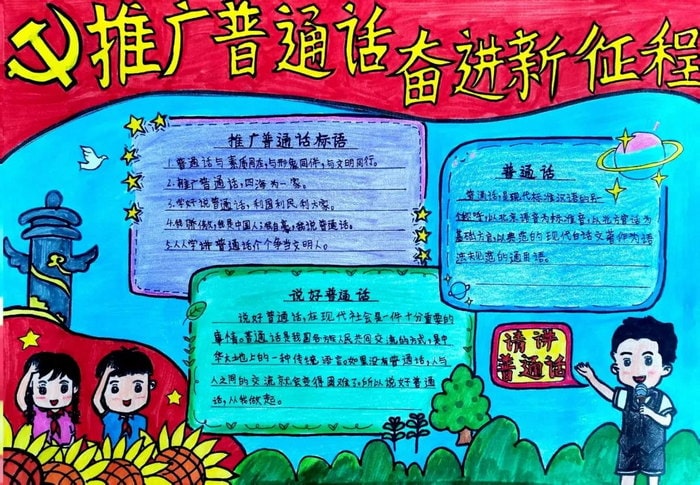 推广普通话 奋进新征程
推广普通话标语
1.普通话与素质同在,与形象同伴,与文明同行。
2.推广普通话,四海为一家。
3.学好说普通话,利国利民利大家。
人,
说普通话。
5.人人学讲普通话个个争当文明人。
普通话
普通话,是现代标准汉语的另
以北京语音为标准音,以北方官话为
基础方言,以典范的现代白话文著作为语
法规范的通用语。
说好普通话
说好普通话,在现代社会是一件十分重要的
事情。普通话是我国各族人民共同交流的方式,是中
华大地上的一种传统语言。如果没有普通话,人与
人之间的交流就会变得困难了。所以说好普通
话,从我做起。
请讲
普通话